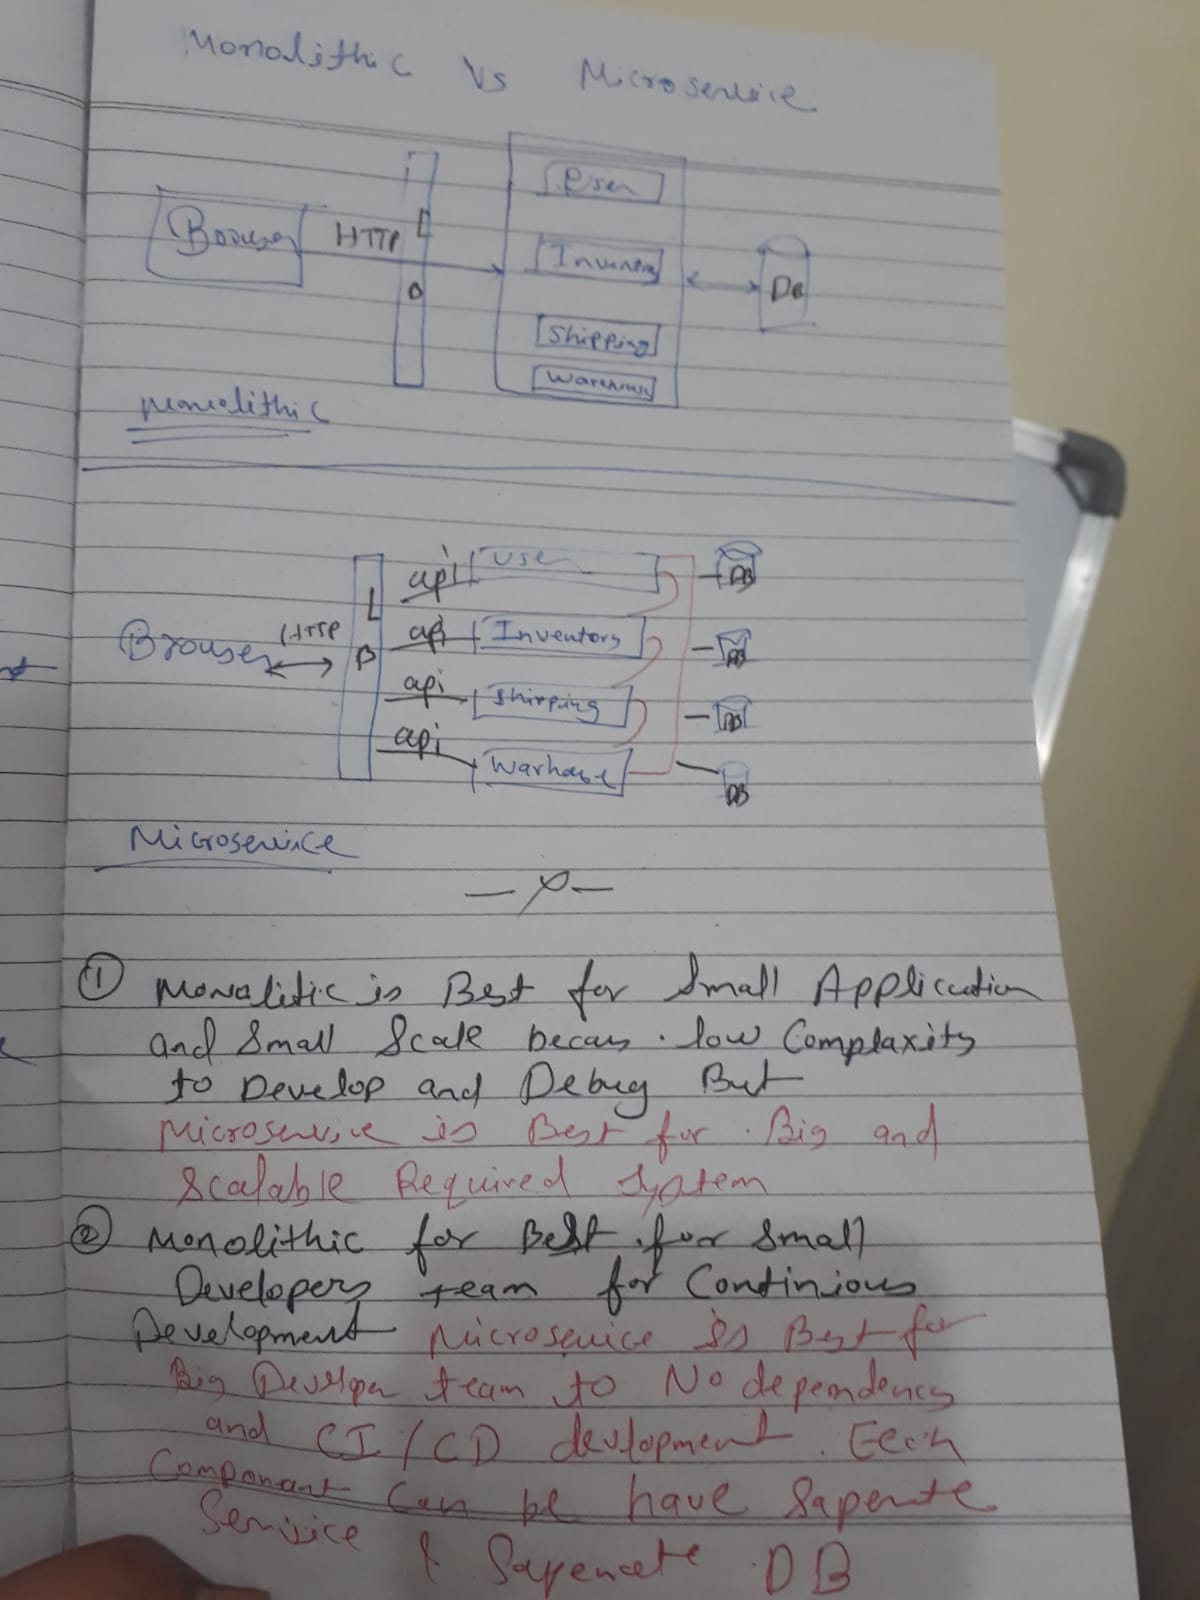 Monolithic Vs Microservice
User
Browser HTTP L Inventory
B DB
Shipping
Warehouse
Monolithic
api User DB
L
Browser HTTP B api Inventory DB
api Shipping DB
api Warhase DB
Microservice
—x—
① Monalitic is Best for Small Application
and Small Scale becaus. low Complaxity
to Develop and Debug But
Microservice is Best for Big and
Scalable Required System
② Monolithic for Best for Small
Developers team for Continious
Development Microservice is Best for
Big Develper team to No dependency
and CI/CD devlopment. Eech
Componant Can be have Saperate
Service & Saperate DB